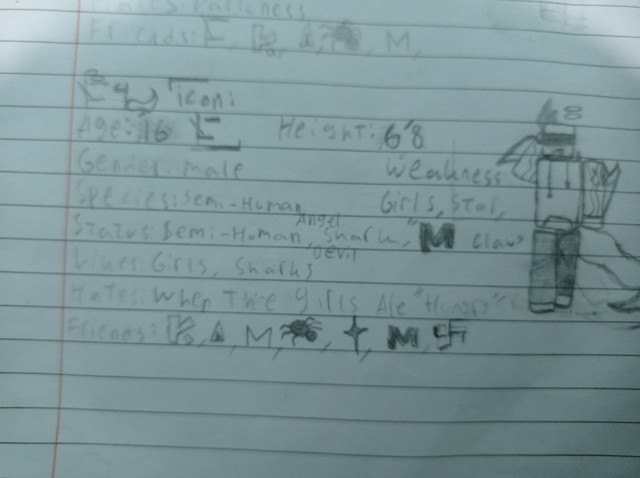 Hates: Darkness
Friends: E, K, M,
icon: E
Age: 16 Height: 6'8
Gender: male Weakness:
Species: Semi-Human Girls, Star,
Angel
Status: Semi-Human, Shark, "M claw
Devil
Likes: Girls, Sharks
Hates: When The girls Are "Hungry"
Friends: K, M, M,